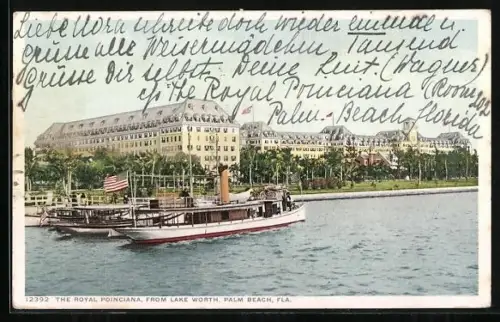 Liebe Nora schreibe doch wieder einmal u
grüsse alle Weisermädchen, Tausend
Grüsse Dir selbst Deine Luit. (Wagner)
The Royal Poinciana (Room 212
Palm-Beach, Florida
12392 THE ROYAL POINCIANA, FROM LAKE WORTH, PALM BEACH, FLA.